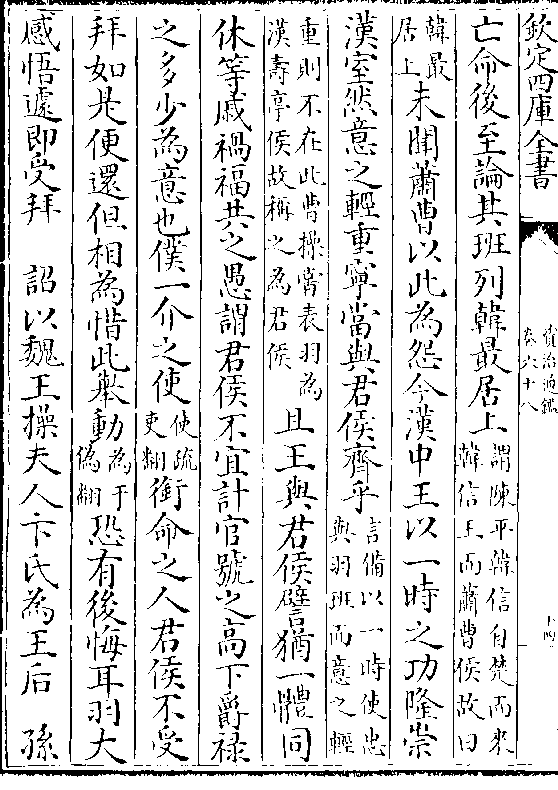 欽定四庫全書
資治通鑑
卷六十八
亡命後至論其班列韓最居上謂陳平韓信自楚而來韓信王而蕭曹侯故曰
韓最居上未聞蕭曹以此為怨今漢中王以一時之功隆崇
漢室然意之輕重寧當與君侯齊乎言備以一時使忠與羽班而意之輕
重則不在此曹操嘗表羽為漢壽亭侯故稱之為君侯且王與君侯譬猶一體同
休等戚禍福共之愚謂君侯不宜計官號之高下爵祿
之多少為意也僕一介之使使疏吏翻銜命之人君侯不受
拜如是便還但相為惜此舉動為于偽翻恐有後悔耳羽大
感悟遽即受拜　詔以魏王操夫人卞氏為王后　孫